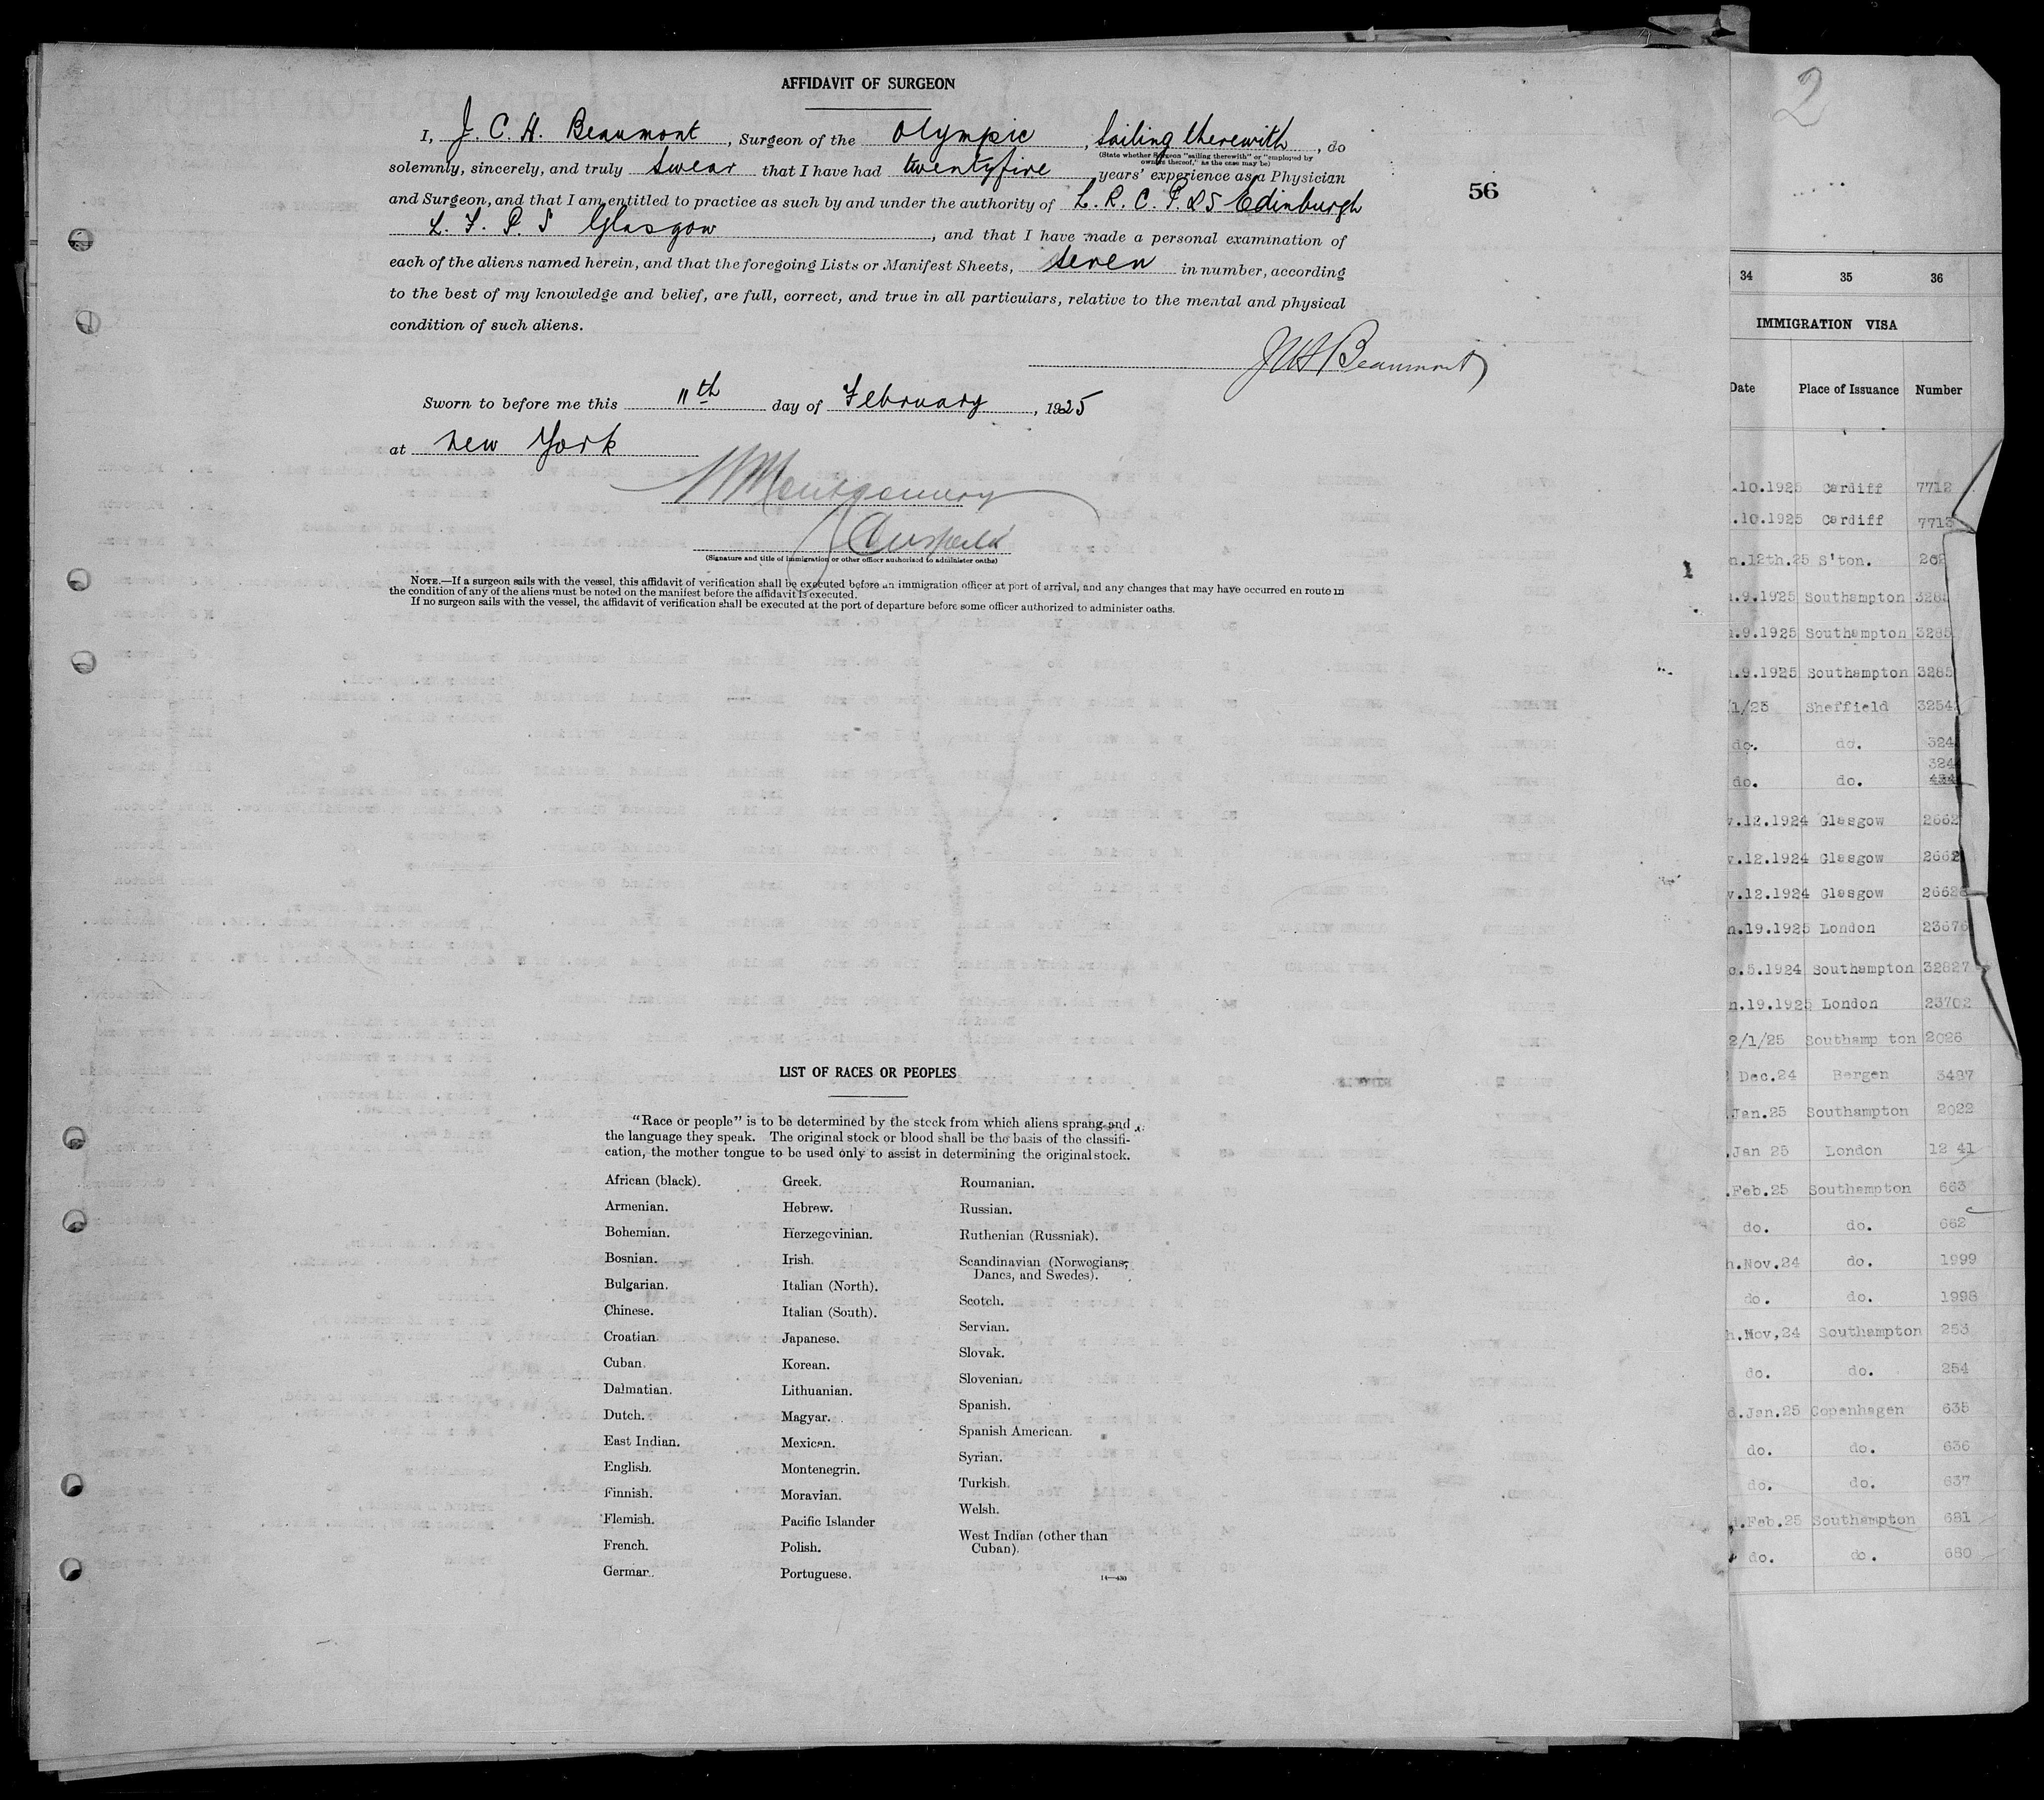 AFFIDAVIT OF SURGEON
I, J. C. H. Beaumont, Surgeon of the Olympic, Sailing therewith, do
(State whether Surgeon "sailing therewith" or "employed by
owners thereof," as the case may be)
solemnly, sincerely, and truly swear that I have had twentyfive years' experience as a Physician
and Surgeon, and that I am entitled to practice as such by and under the authority of L. R. C. P. & S Edinburgh
L. F. P. S Glasgow, and that I have made a personal examination of
each of the aliens named herein, and that the foregoing Lists or Manifest Sheets, seven in number, according
to the best of my knowledge and belief, are full, correct, and true in all particulars, relative to the mental and physical
condition of such aliens.
56
JCH Beaumont
Sworn to before me this 11th day of February, 1925
at New York
Montgomery
(Signature and title of immigration or other officer authorized to administer oaths)
NOTE.—If a surgeon sails with the vessel, this affidavit of verification shall be executed before an immigration officer at port of arrival, and any changes that may have occurred en route in
the condition of any of the aliens must be noted on the manifest before the affidavit is executed.
If no surgeon sails with the vessel, the affidavit of verification shall be executed at the port of departure before some officer authorized to administer oaths.
LIST OF RACES OR PEOPLES
"Race or people" is to be determined by the stock from which aliens sprang and
the language they speak. The original stock or blood shall be the basis of the classifi-
cation, the mother tongue to be used only to assist in determining the original stock.
African (black).
Armenian.
Bohemian.
Bosnian.
Bulgarian.
Chinese.
Croatian.
Cuban.
Dalmatian.
Dutch.
East Indian.
English.
Finnish.
Flemish.
French.
German.
Greek.
Hebrew.
Herzegovinian.
Irish.
Italian (North).
Italian (South).
Japanese.
Korean.
Lithuanian.
Magyar.
Mexican.
Montenegrin.
Moravian.
Pacific Islander
Polish.
Portuguese.
Roumanian.
Russian.
Ruthenian (Russniak).
Scandinavian (Norwegians,
Danes, and Swedes).
Scotch.
Servian.
Slovak.
Slovenian.
Spanish.
Spanish American.
Syrian.
Turkish.
Welsh.
West Indian (other than
Cuban).
14—430
2
34 35 36
IMMIGRATION VISA
Date Place of Issuance Number
.10.1925 Cardiff 7712
.10.1925 Cardiff 7713
n.12th.25 S'ton. 262
.9.1925 Southampton 328
.9.1925 Southampton 3285
.9.1925 Southampton 3285
/1/25 Sheffield 3254
do. do. 324
324
do. do. 434
v.12.1924 Glasgow 2662
v.12.1924 Glasgow 2662
v.12.1924 Glasgow 2662
n.19.1925 London 23676
c.5.1924 Southampton 32827
n.19.1925 London 23702
2/1/25 Southamp ton 2026
Dec.24 Bergen 3497
Jan.25 Southampton 2022
.Jan 25 London 12 41
.Feb.25 Southampton 663
do. do. 662
h.Nov.24 do. 1999
do. do. 1998
h.Nov,24 Southampton 253
do. do. 254
d.Jan.25 Copenhagen 635
do. do. 636
do. do. 637
.Feb.25 Southampton 681
do. do. 680